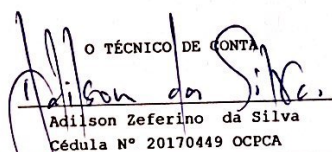 O TÉCNICO DE CONTA
Adilson da Silva.
Adilson Zeferino da Silva
Cédula Nº 20170449 OCPCA